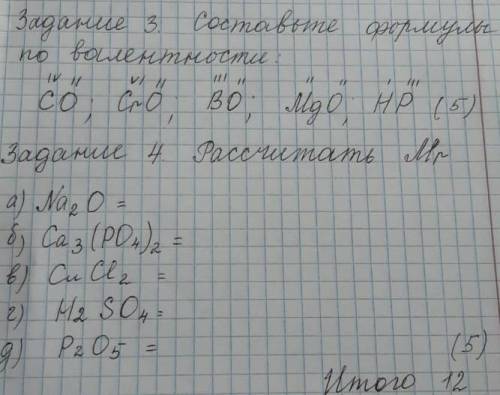 Задание 3. Составьте формулы
по валентности:
IV II VI II III II II II I III
CO; CrO; BO; MgO; HP (5)
Задание 4. Рассчитать Mr
а) Na₂O =
б) Ca₃(PO₄)₂ =
в) CuCl₂ =
г) H₂SO₄ =
д) P₂O₅ = (5)
Итого 12